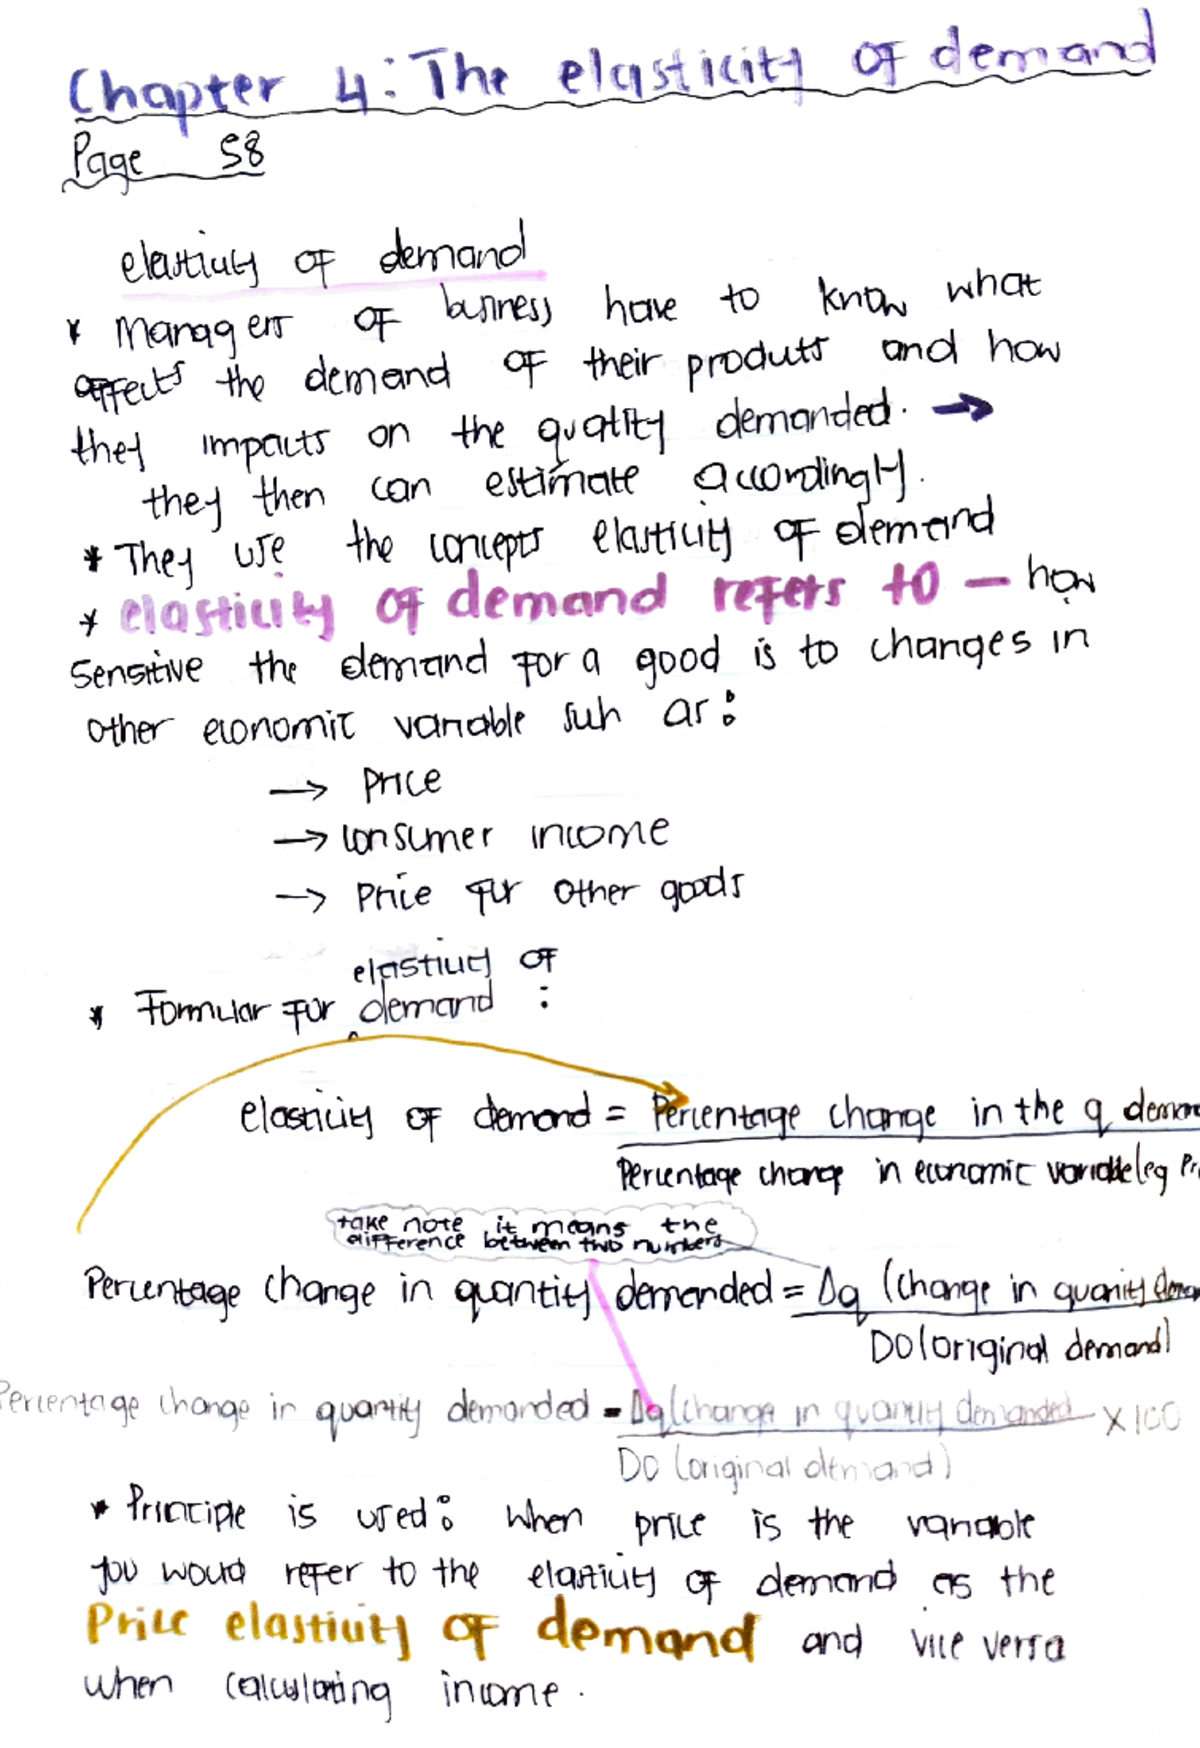 Chapter 4: The elasticity of demand
Page 58
elasticity of demand
* Managers of business have to know what
affects the demand of their products and how
they impacts on the quality demanded. →
they then can estimate accordingly.
* They use the concepts elasticity of demand
* elasticity of demand refers to — how
Sensitive the demand for a good is to changes in
other economic variable such as:
→ Price
→ consumer income
→ Price for other goods
elasticity of
* Formular for demand :
elasticity of demand = Percentage change in the q deman
Percentage change in economic variable (eg Pri
take note it means the
difference between two numbers
Percentage change in quantity demanded = Δq (change in quanity deman
DO (original demand)
Percentage change in quantity demanded = Δq (change in quantity demanded × 100
DO (original demand)
* Principle is used: when price is the variable
you would refer to the elasticity of demand as the
Price elasticity of demand and vice versa
when calculating income.